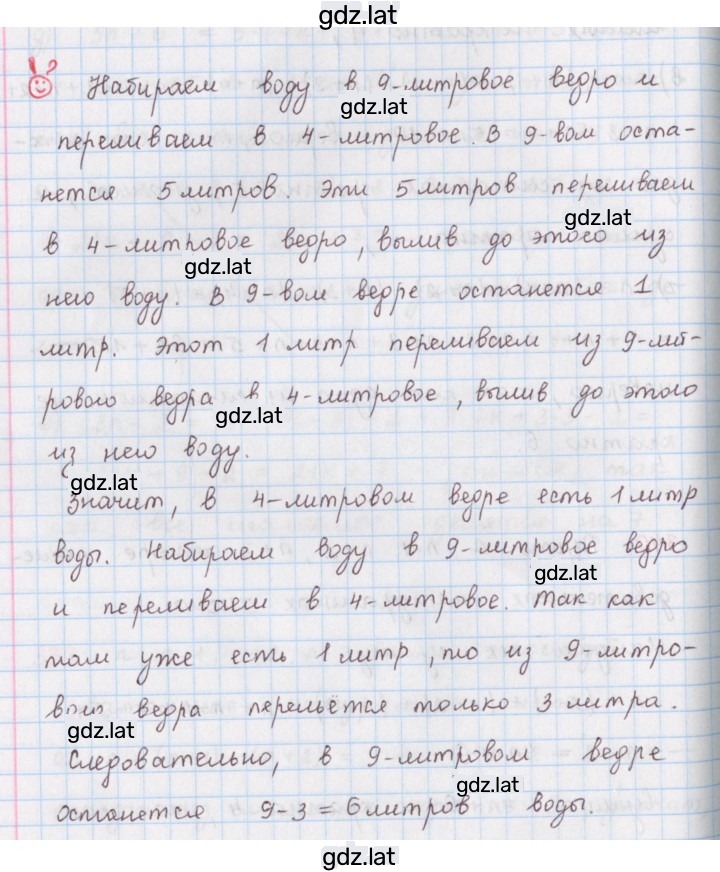 gdz.lat
!? Набираем воду в 9-литровое ведро и
gdz.lat
переливаем в 4-литровое. В 9-вом оста-
нется 5 литров. Эти 5 литров переливаем
gdz.lat
в 4-литровое ведро, вылив до этого из
gdz.lat
него воду. В 9-вом ведре останется 1
литр. Этот 1 литр переливаем из 9-лит-
рового ведра в 4-литровое, вылив до этого
gdz.lat
из него воду.
gdz.lat
Значит, в 4-литровом ведре есть 1 литр
воды. Набираем воду в 9-литровое ведро
gdz.lat
и переливаем в 4-литровое. Так как
там уже есть 1 литр, то из 9-литро-
вого ведра перельётся только 3 литра.
gdz.lat
Следовательно, в 9-литровом ведре
gdz.lat
останется 9-3=6 литров воды.
gdz.lat